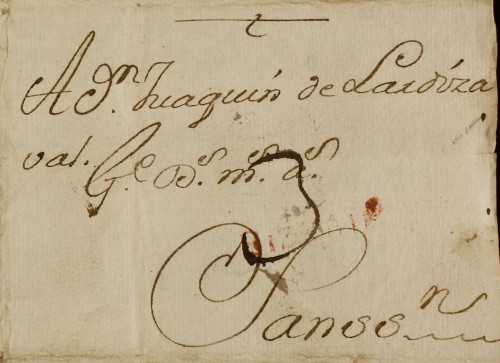 A Dn. Juaquin de Lardiza
val. Ge. Ds. ms. as.
3
Sanssn